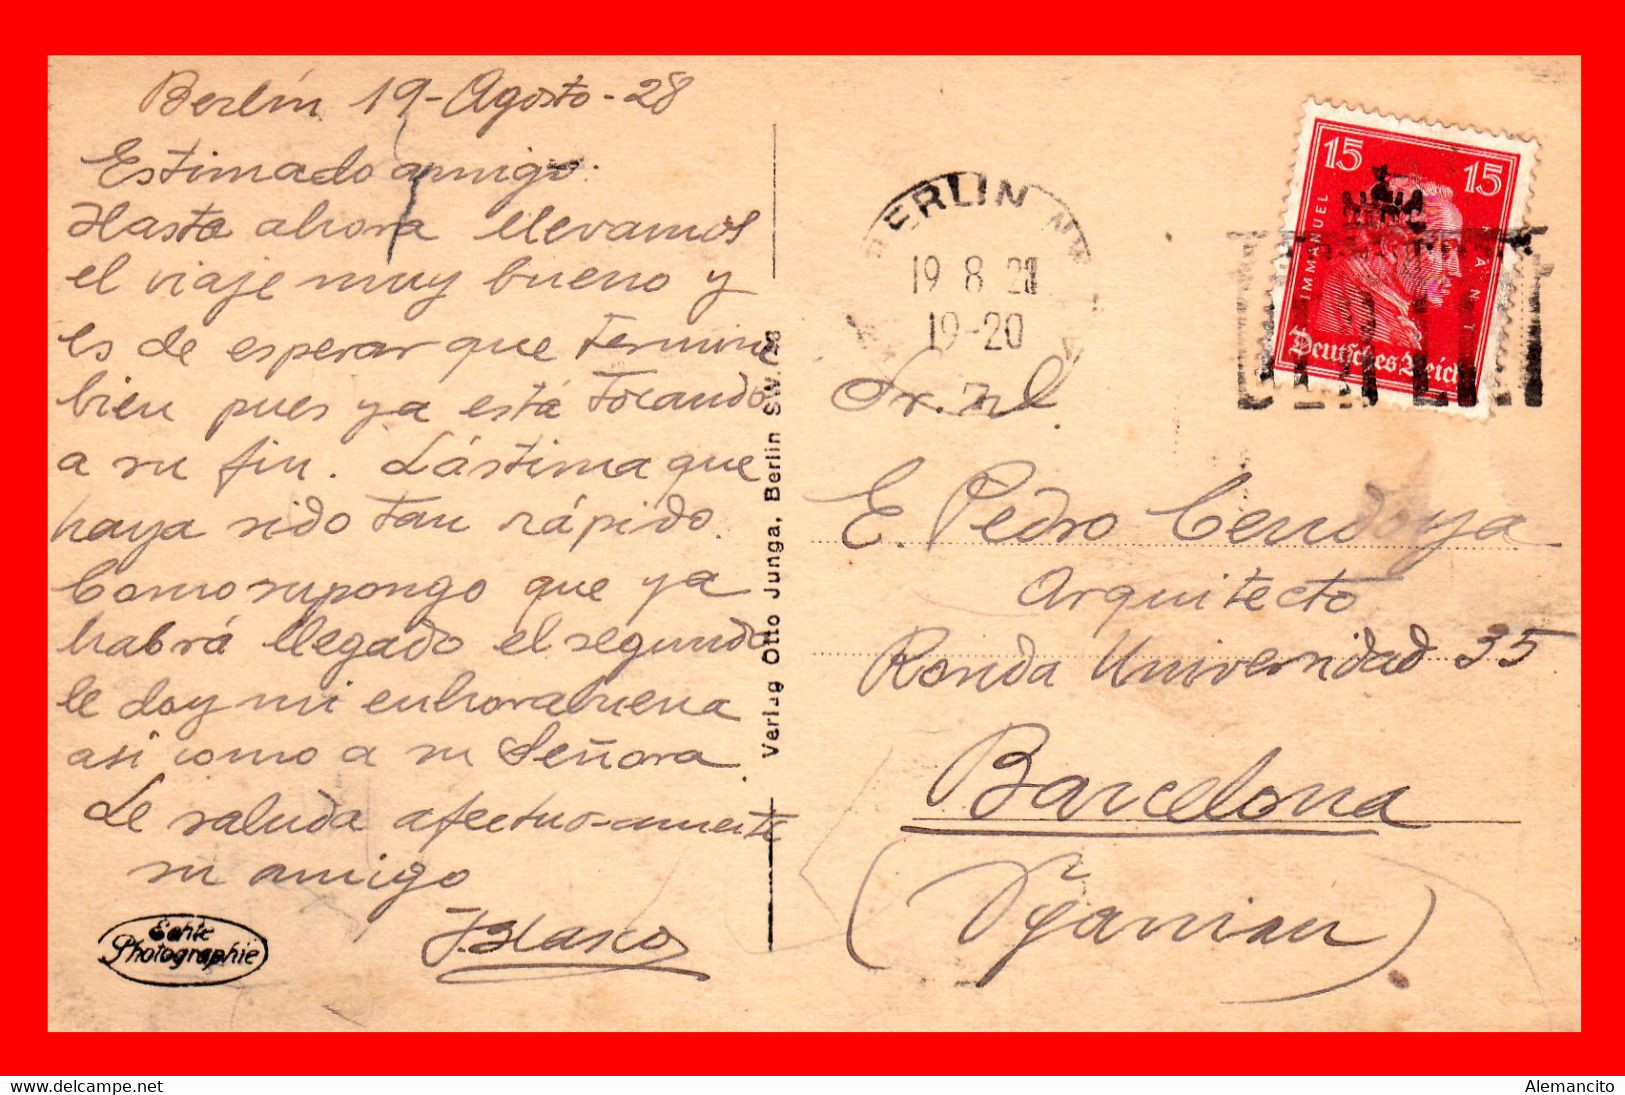 Berlin 19-Agosto-28
Estimado amigo:
Hasta ahora llevamos
el viaje muy bueno y
es de esperar que termine
bien pues ya está tocando
a su fin. Lástima que
haya sido tan rápido.
Como supongo que ya
habrá llegado el segundo
le doy mi enhorabuena
asi como a su Señora.
Le saluda afectuo-amente
su amigo
J. Blasco
Echte
Photographie
Verlag Otto Junga, Berlin SW.
BERLIN NW
19 8 28
19-20
15 15
IMMANUEL KANT
Deutsches Reich
BERLIN
E. Pedro Cendoya
Arquitecto
Ronda Universidad 35
Barcelona
(Spanien)
delcampe.net
Alemancito